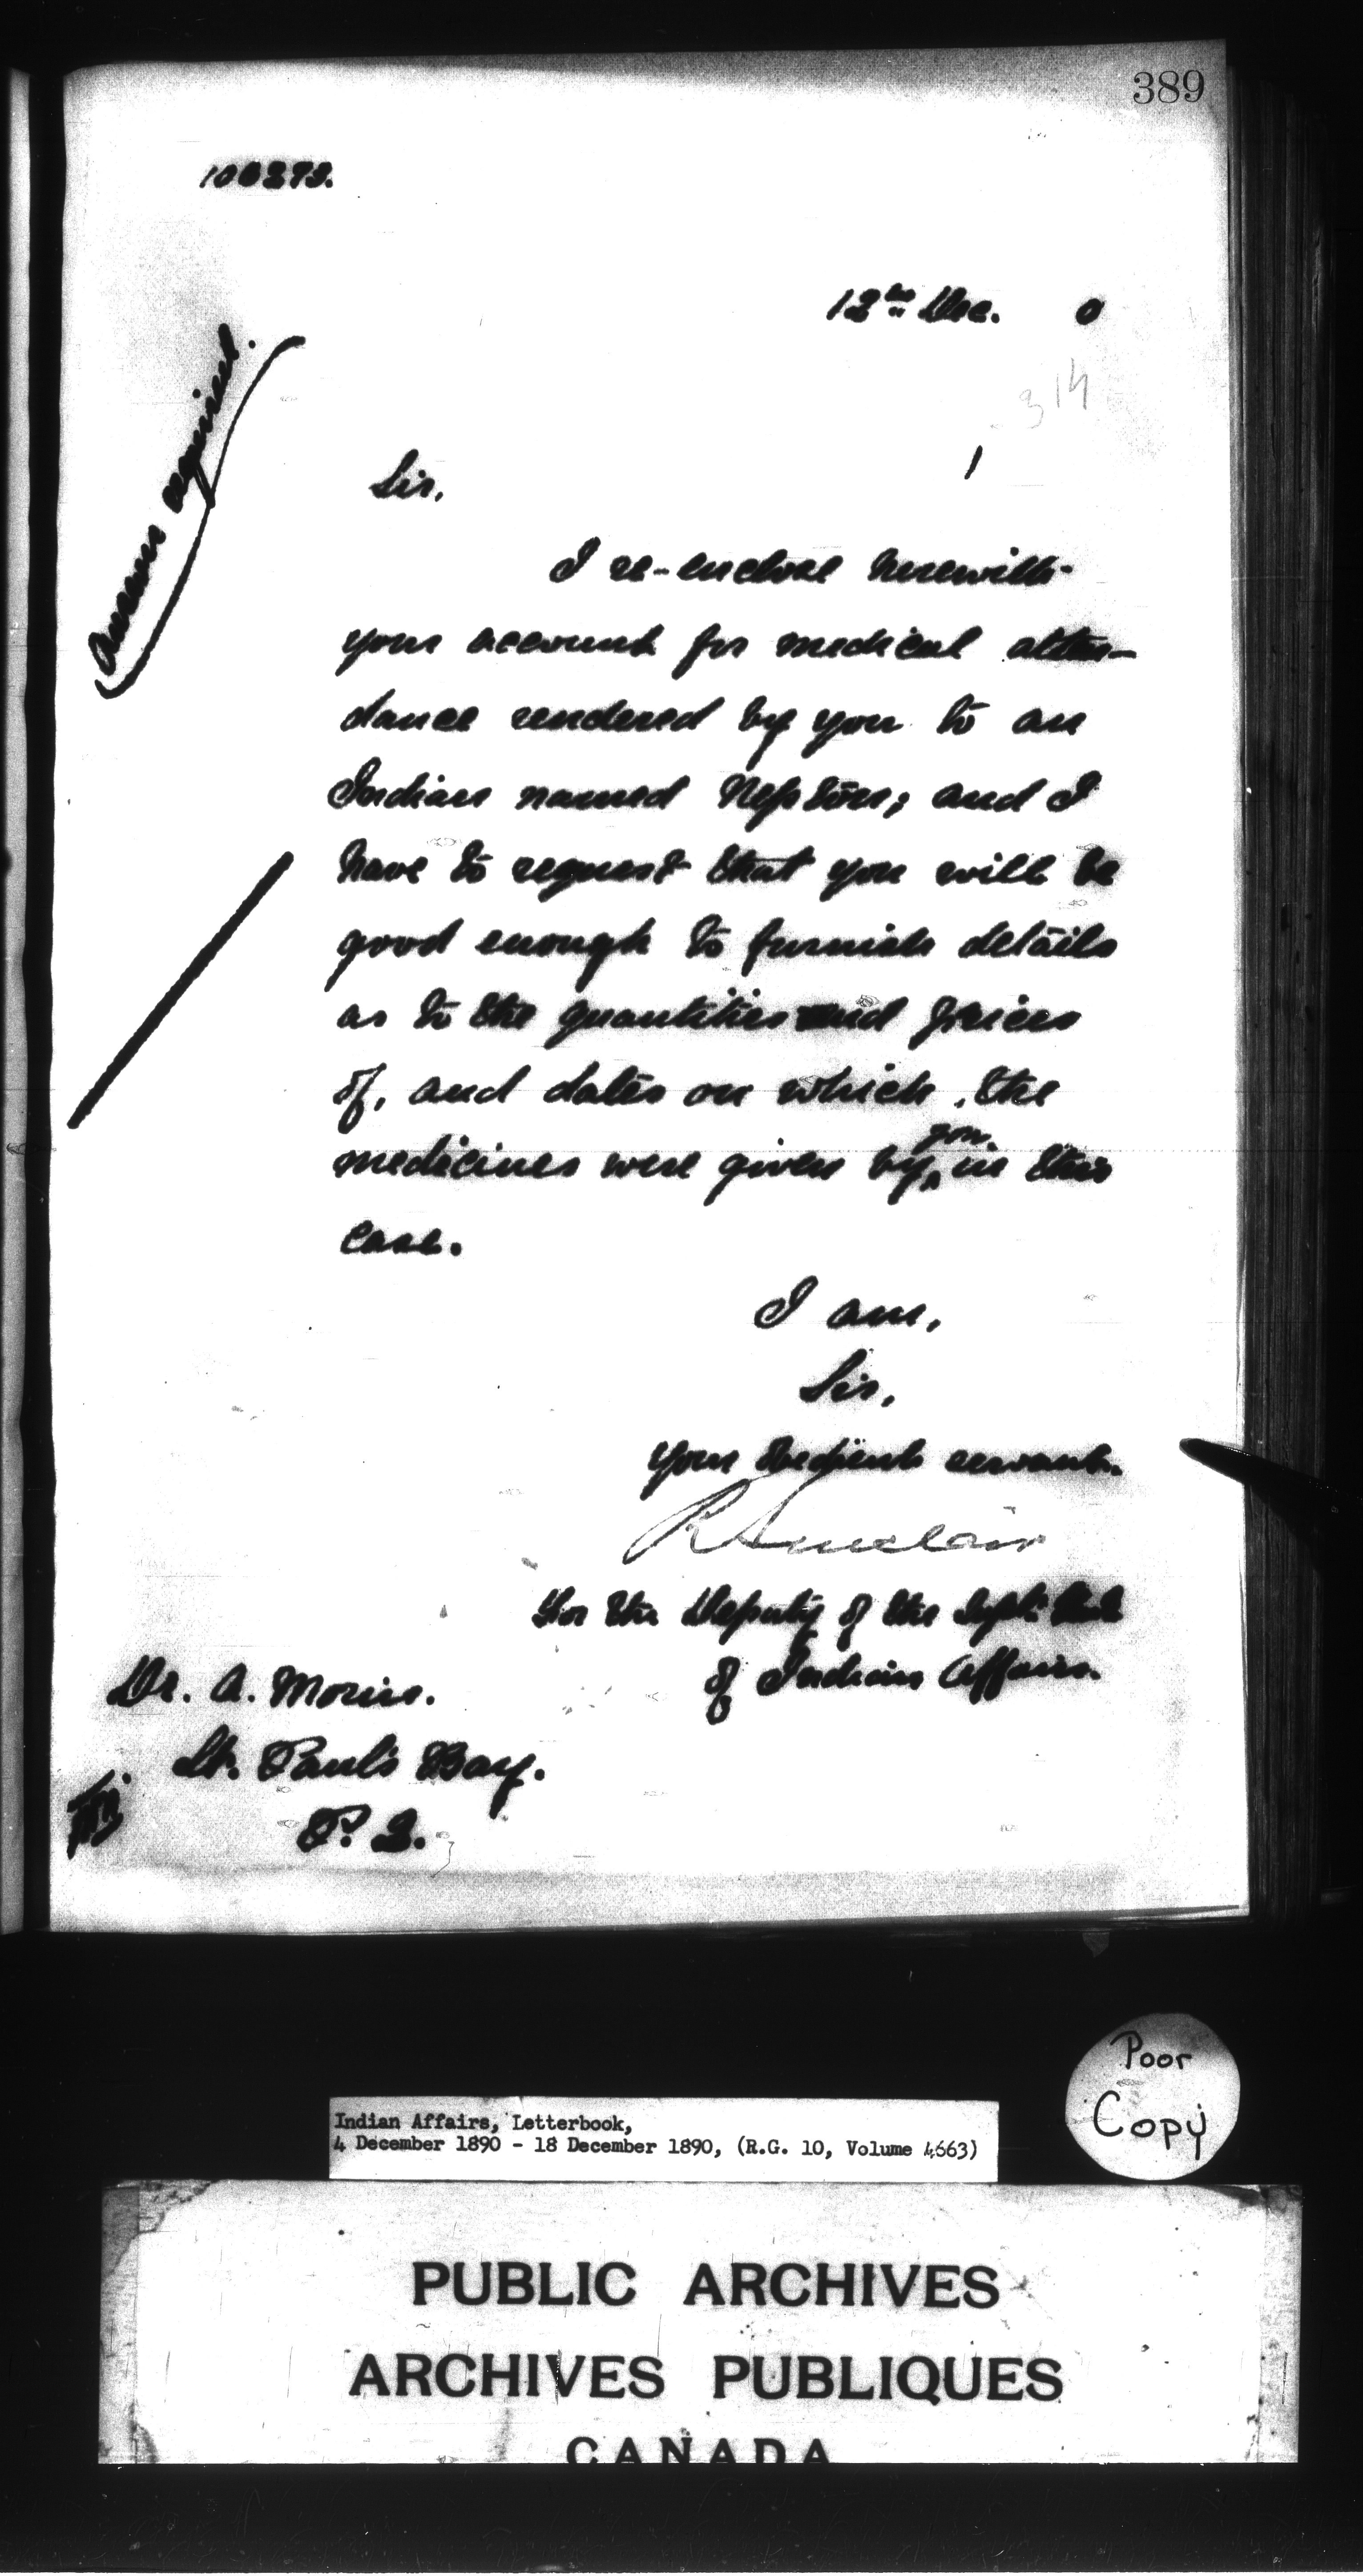 389
106273.
12th Dec. 0
314
Answer required.
Sir,
I re-enclose herewith
your account for medical atten-
dance rendered by you to an
Indian named Neptôn; and I
have to request that you will be
good enough to furnish details
as to the quantities and prices
of, and dates on which, the
medicines were given by you in this
case.
I am,
Sir,
Your obedient servant.
R Sinclair
For the Deputy of the Supt. Genl.
of Indian Affairs.
Dr. A. Morin.
St. Paul's Bay.
P. Q.
Poor
Copy
Indian Affairs, Letterbook,
4 December 1890 - 18 December 1890, (R.G. 10, Volume 4663)
PUBLIC ARCHIVES
ARCHIVES PUBLIQUES
CANADA